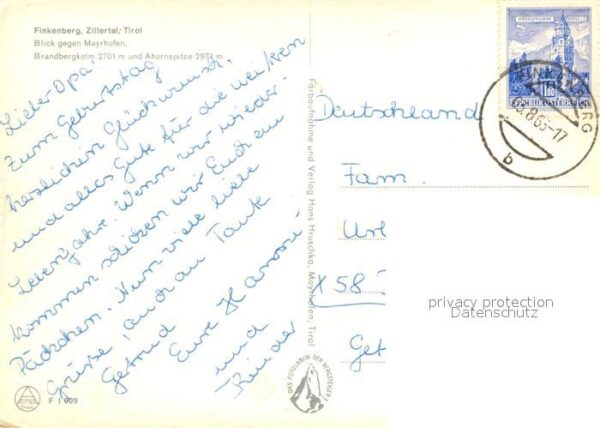 Finkenberg, Zillertal, Tirol
Blick gegen Mayrhofen,
Brandbergkolm 2701 m und Ahornspitze 2971 m
Lieber Opa!
Zum Geburtstag
herzlichen Glückwunsch,
und alles Gute für die weiteren
Lebensjahre. Wenn wir wieder-
kommen schicken wir Euch ein
Päckchen. Nun viele liebe
Grüße, auch an Tante
Gertrud Eure Hanni
und
Kinder
F 1 009
Farbaufnahme und Verlag Hans Hruschka, Mayrhofen, Tirol
DAS EDELWEISS DER BERGSTEIGER
REPUBLIK ÖSTERREICH
FINKENBERG
8.65-17
b
Deutschland
Fam.
X 58
privacy protection
Datenschutz